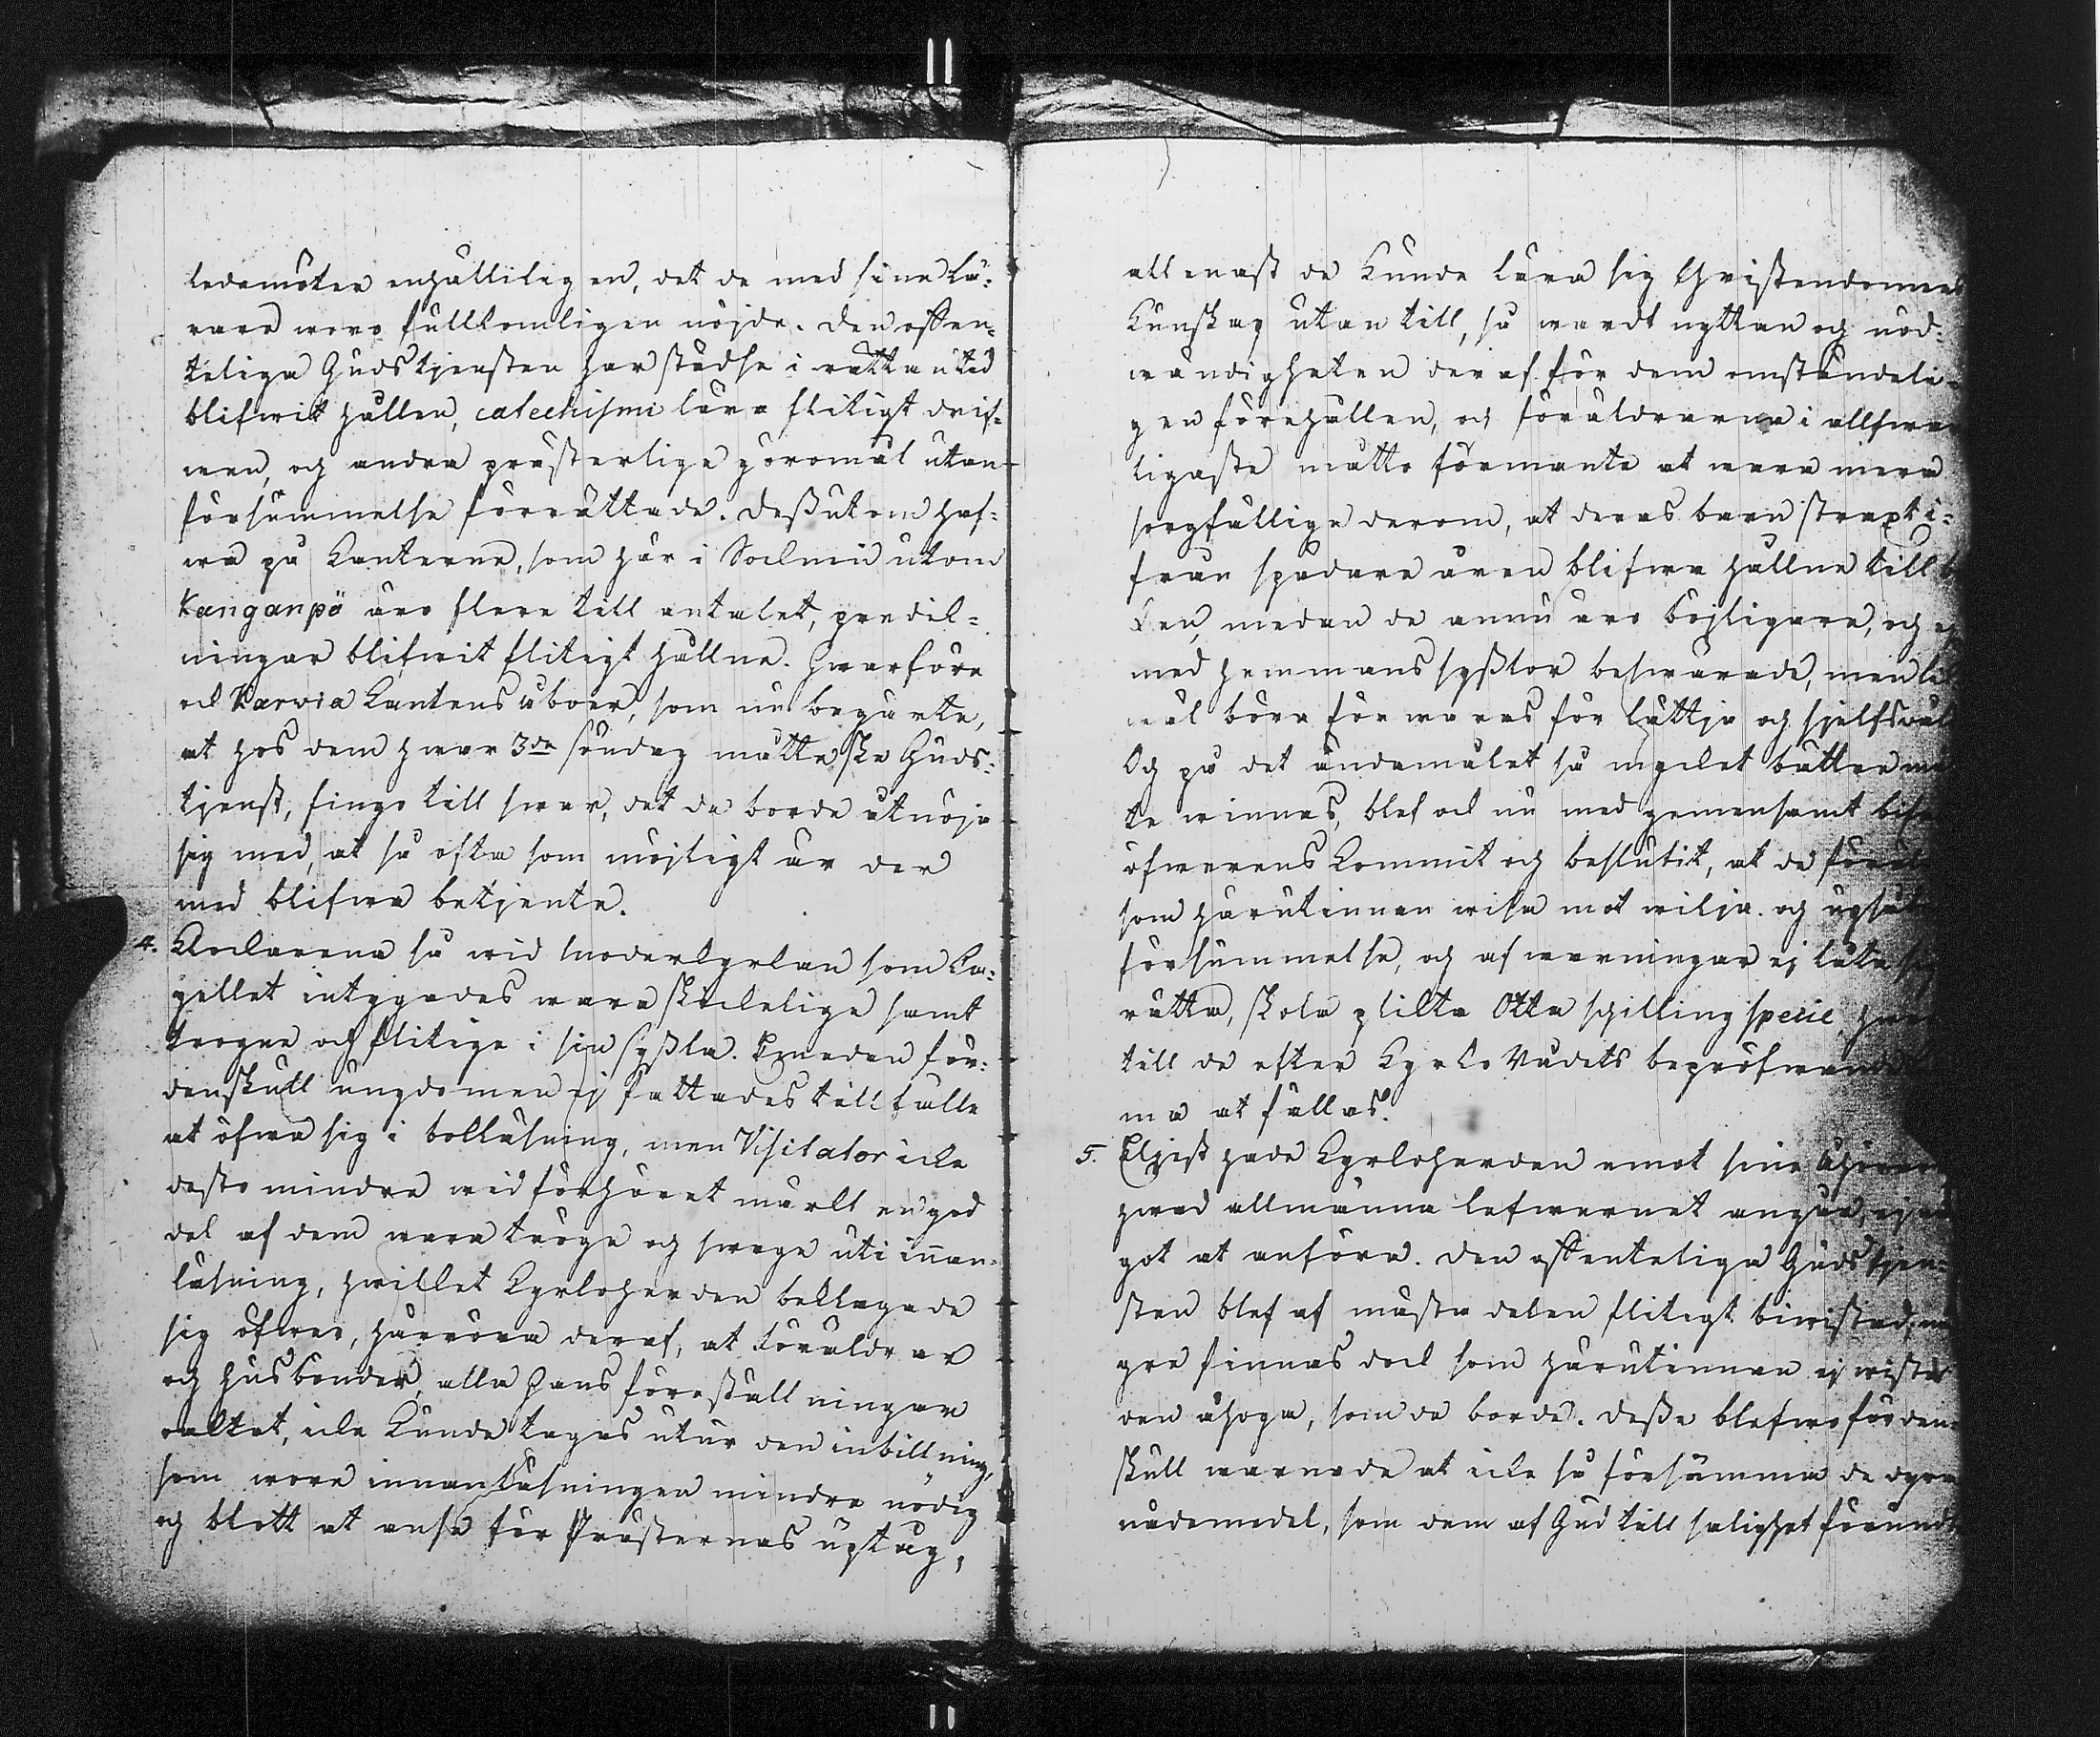 ledamöter enhälleligen, det de med sine Lä-
rare woro fullkomligen nöjde. Den offen-
teliga Gudstjensten har städse i rättan tid
blifwit hållen, catechismi lära flitigt drif-
wen, och andra prästerlige göromål utan
försummelse förrättade. Dessutom haf-
wa på Kanterna, som här i Socknen utom
Kanganpä äro flere till antalet, predik-
ningar blifwit flitigt hållne. Hwarföre
ock Karvia Kantens åboer, som nu begärte,
at hos dem hwar 3de söndag måtte ske Guds-
tjenst, fingo till swar, det de borde åtnöja
sig med, at så ofta som möjligt är der
med blifwa betjente.
4. Klockarena så wid Moderkyrkan som Ka-
pellet intygades wara skickelige samt
trogne och flitige i sin syssla. Ehuru den för-
denskull ungdomen ej fattades tillfälle
at öfwa sig i bokläsning, men Visitator icke
desto mindre wid förhöret märkt en god
del af dem wara tröge och swage uti innan-
läsning, hwilket Kyrkoherden beklagade
sig öfwer, härröra deraf, at föräldrar
och husbönder, alla hans föreställningar
oaktat, icke kunde tagas utur den inbillning,
som wore innanläsningen mindre nödig
och blott at anse för Prästernas uptåg,
allenast de kunde lära sig Christendomens
Kunskap utan till, så wardt nyttan och nöd-
wändigheten deraf för dem omständeli-
gen förehållen, och föräldrarne i allfwar
ligaste måtto förmante at wara mera
sorgfällige derom, at deras barn straxt i-
från spädare åren blifwa hållne till bo
ken, medan de ännu äro böjligare, och ej
med hemmans sysslor beswärade, men lik
wäl böra förwaras för lättja och sjelfswåld
Och på det ändamålet så mycket bättre må
te winnas, blef ock nu med gemensamt bifall
öfwerens kommit och beslutit, at de föräldrar
som härutinnan wisa motwilja och upsåtlig
försummelse, och af warningar ej låta sig
rätta, skola plikta Otta schilling specie, hwar
till de efter Kyrko Rådets bepröfwande
ma at fällas.
5. Eljest hade Kyrkoherden emot sine åhörare
hwad allmänna lefwernet angår, ej nå
got at anföra. Den offenteliga Gudstjen-
sten blef af mästa delen flitigt biwistad; nå
gre finnas dock som härutinnan ej wista
den åhoga, som de borde. Desse blefwo förden-
skull warnade at icke så försumma de dyra
nådemedel, som dem af Gud till salighet förunde